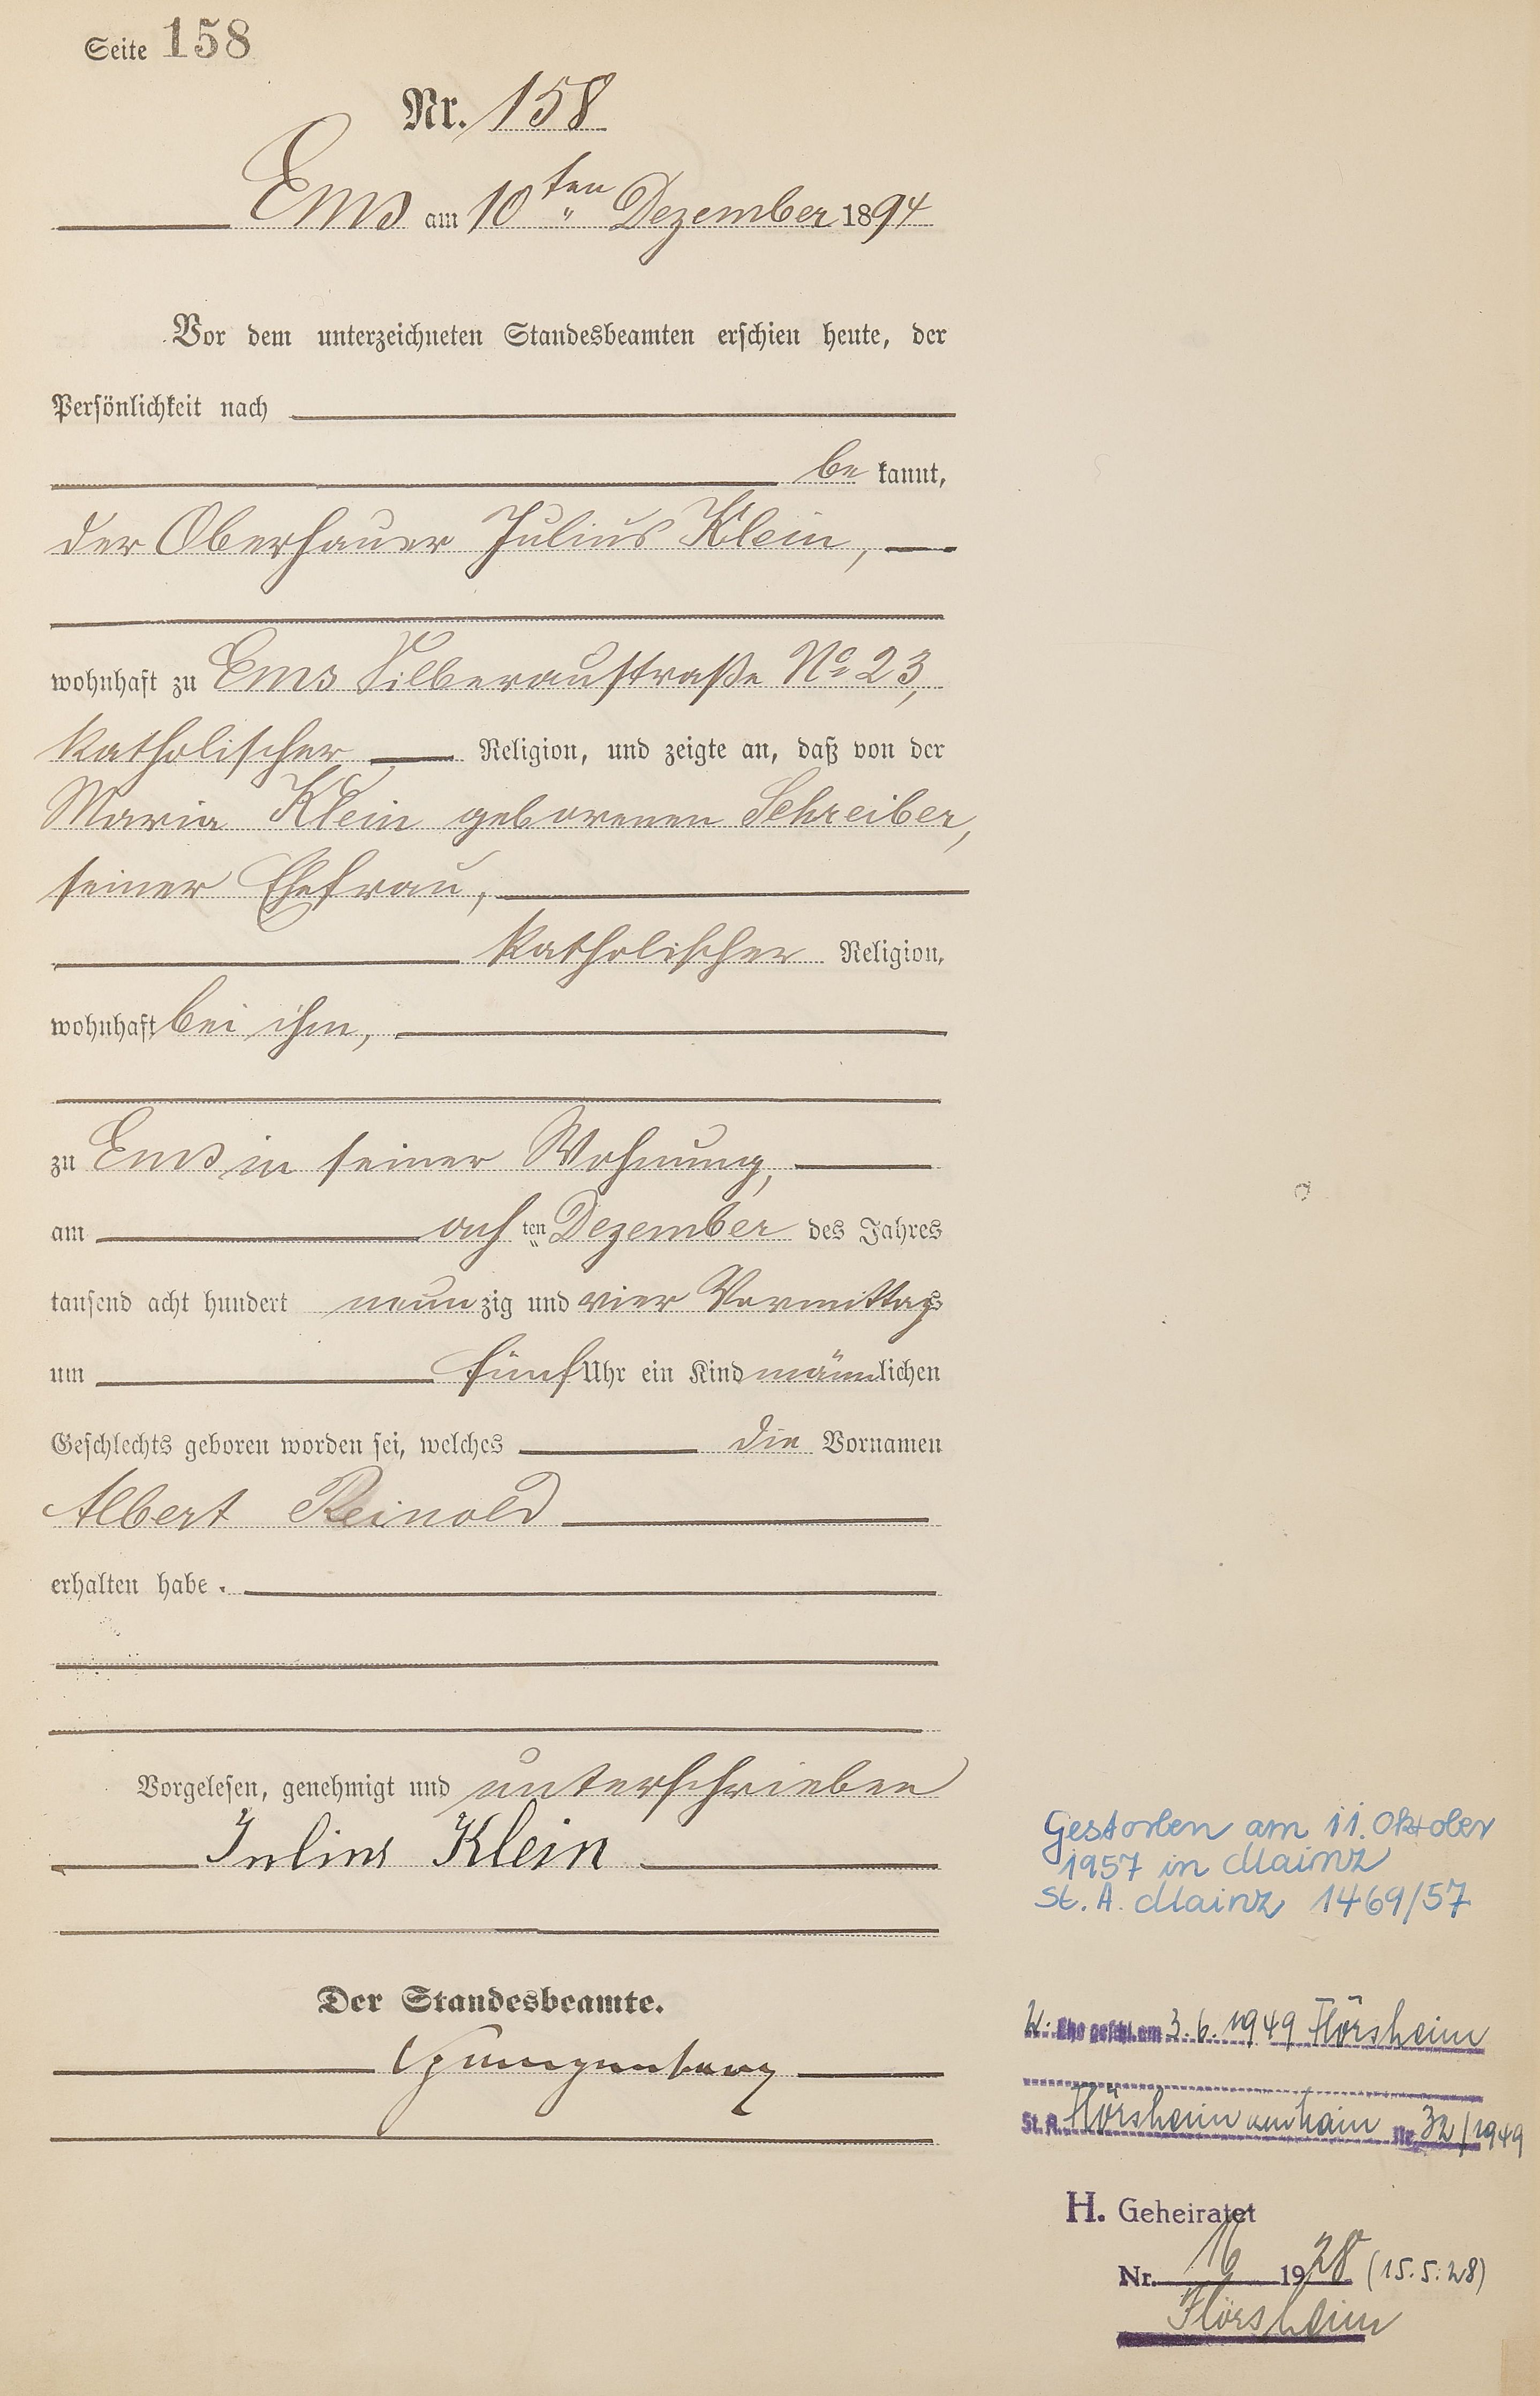 Seite 158
Nr. 158
Ems am 10ten Dezember 1894
Vor dem unterzeichneten Standesbeamten erschien heute, der
Persönlichkeit nach
be kannt,
der Oberhauer Julius Klein,
wohnhaft zu Ems Silberaustraße No 23,
katholischer Religion, und zeigte an, daß von der
Maria Klein geborenen Schreiber,
seiner Ehefrau,
katholischer Religion,
wohnhaft bei ihm,
zu Ems in seiner Wohnung,
am ach ten Dezember des Jahres
tausend acht hundert neun zig und vier Vormittags
um fünf Uhr ein Kind männlichen
Geschlechts geboren worden sei, welches die Vornamen
Albert Reinold
erhalten habe.
Vorgelesen, genehmigt und unterschrieben
Julius Klein
Der Standesbeamte.
Gestorben am 11. Oktober
1957 in Mainz
St. A. Mainz 1469/57
2. Ehe geschl. am 3.6.1949 Flörsheim
St. A. Flörsheim am Main Nr. 32/1949
H. Geheiratet
Nr. 16 1928 (15.5.28)
Flörsheim